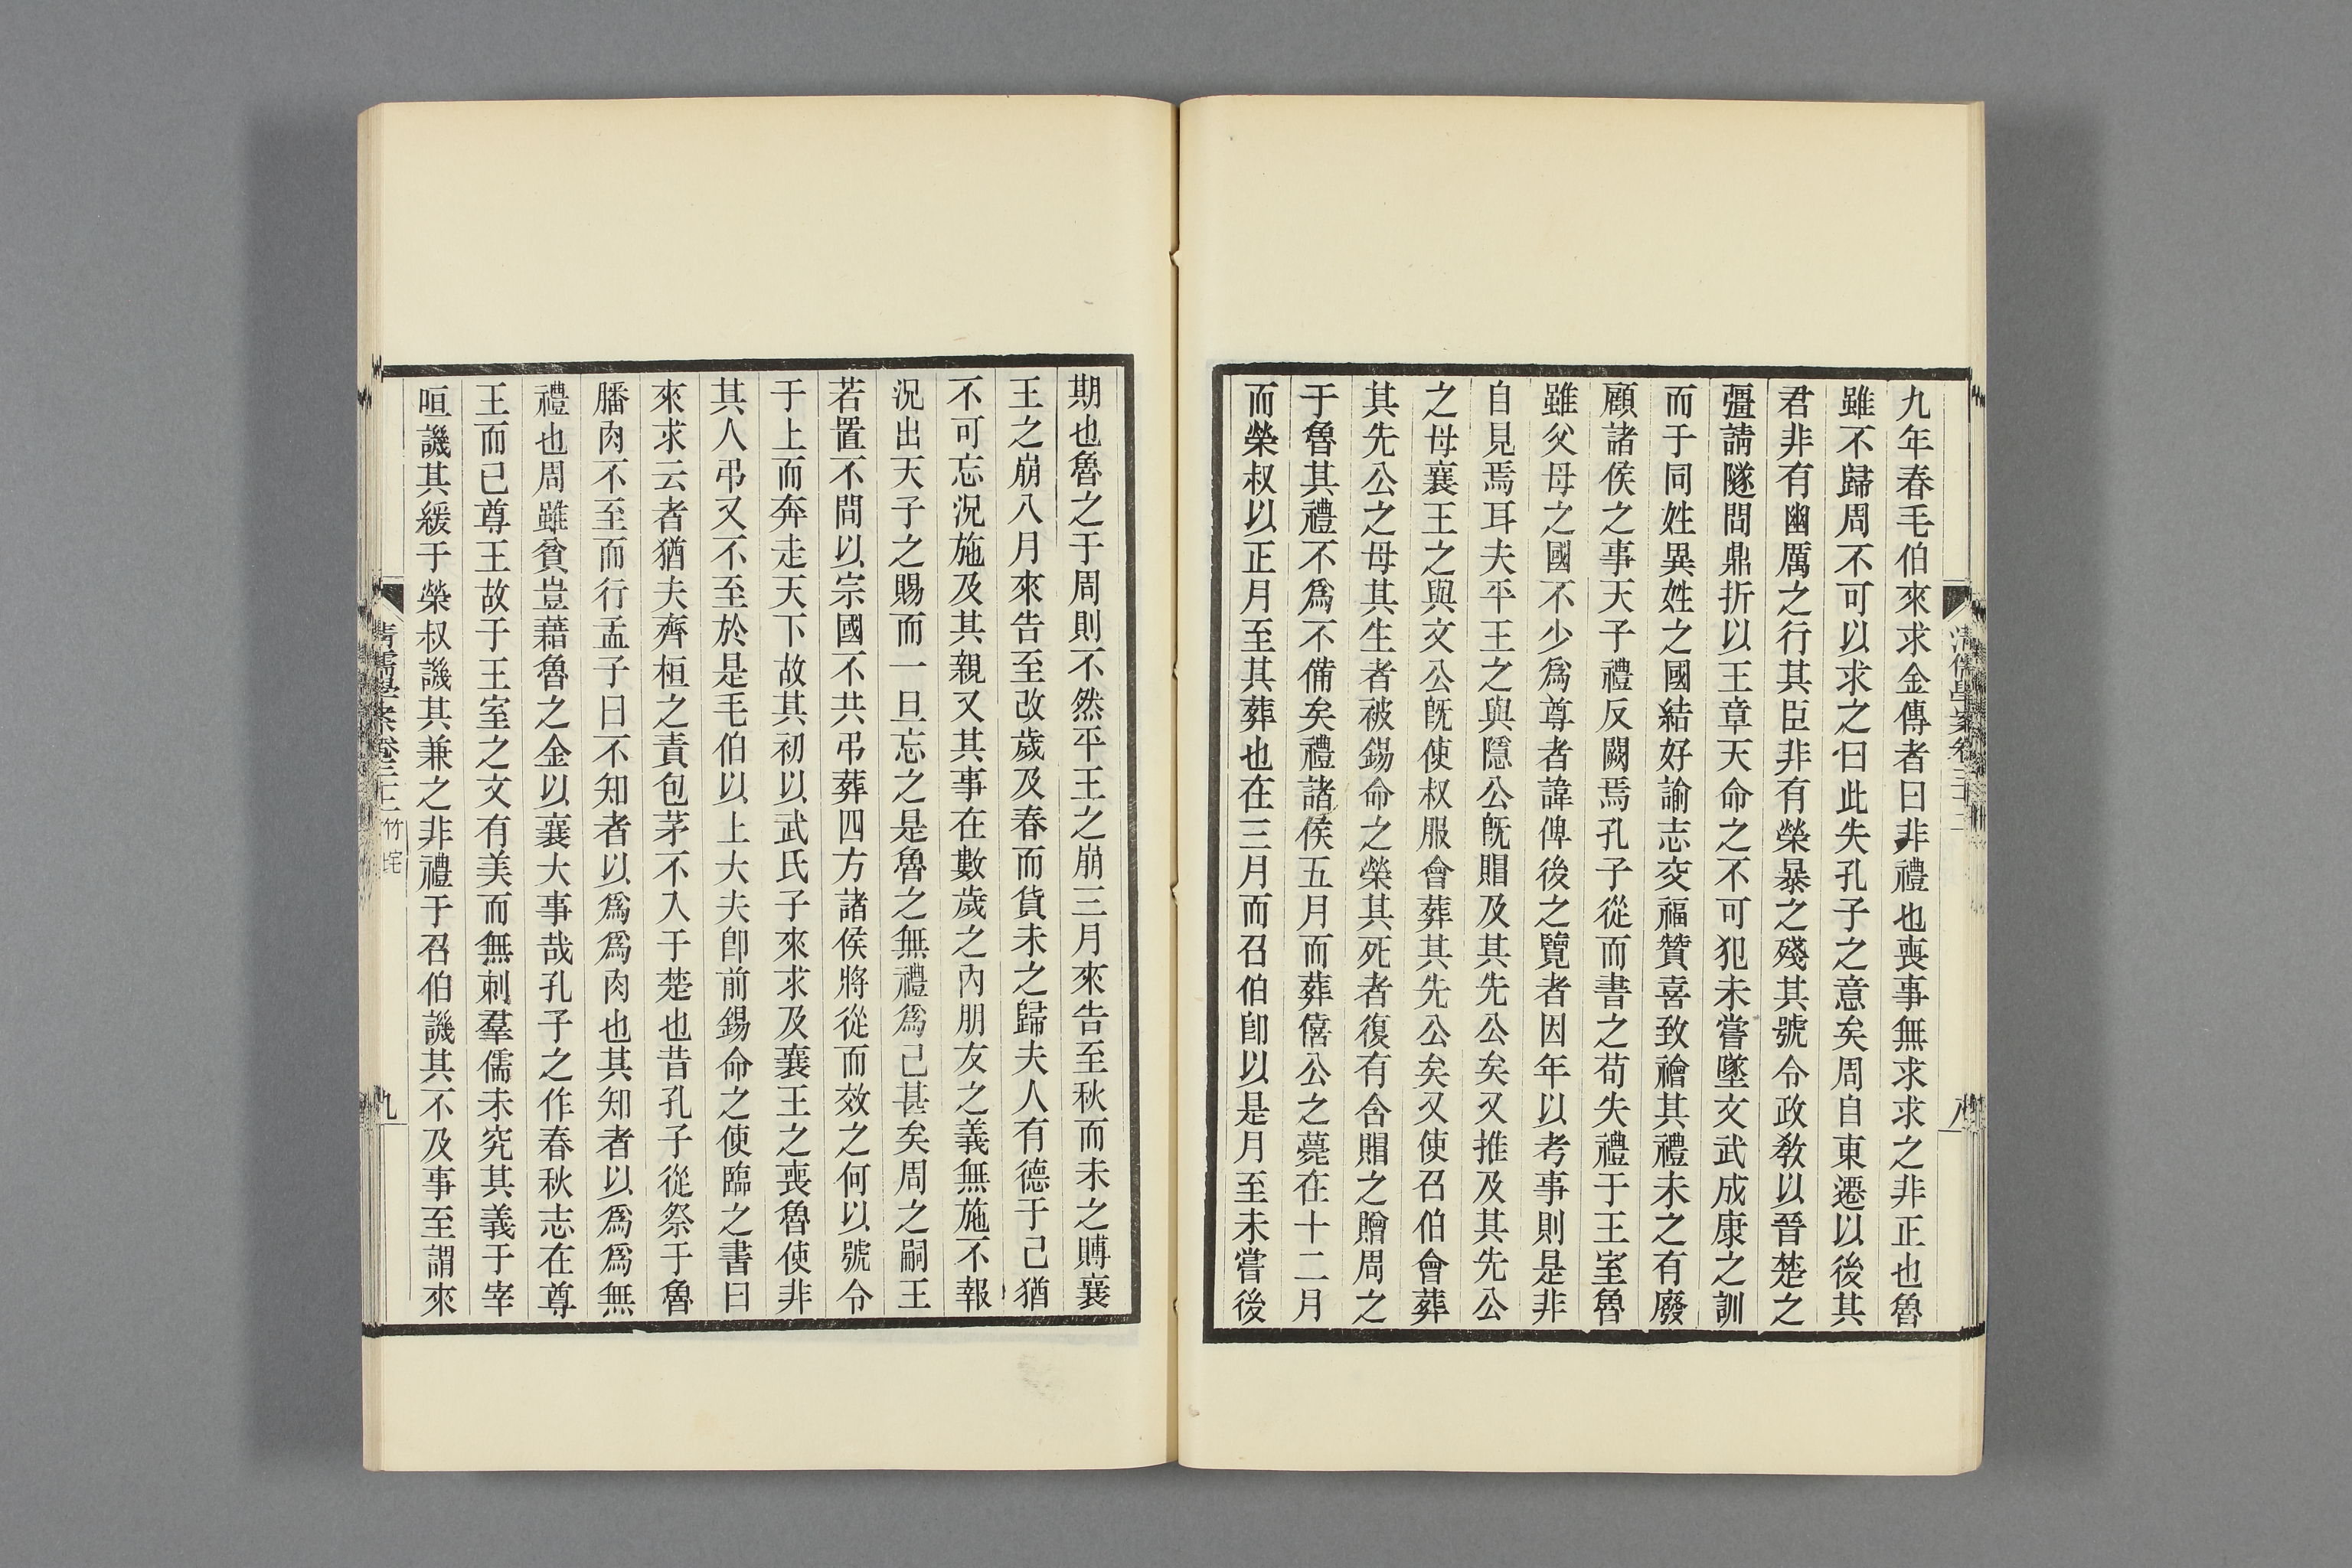 九年春毛伯來求金傳者曰非禮也喪事無求求之非正也魯
雖不歸周不可以求之曰此失孔子之意矣周自東遷以後其
君非有幽厲之行其臣非有榮暴之殘其號令政敎以晉楚之
彊請隧問鼎折以王章天命之不可犯未嘗墜文武成康之訓
而于同姓異姓之國結好諭志交福贊喜致襘其禮未之有廢
顧諸侯之事天子禮反闕焉孔子從而書之苟失禮于王室魯
雖父母之國不少爲尊者諱俾後之覽者因年以考事則是非
自見焉耳夫平王之與隱公旣賵及其先公矣又推及其先公
之母襄王之與文公旣使叔服會葬其先公矣又使召伯會葬
其先公之母其生者被錫命之榮其死者復有含賵之贈周之
于魯其禮不爲不備矣禮諸侯五月而葬僖公之薨在十二月
而榮叔以正月至其葬也在三月而召伯卽以是月至未嘗後
期也魯之于周則不然平王之崩三月來告至秋而未之賻襄
王之崩八月來告至改歲及春而貨未之歸夫人有德于己猶
不可忘況施及其親又其事在數歲之內朋友之義無施不報
況出天子之賜而一旦忘之是魯之無禮爲己甚矣周之嗣王
若置不問以宗國不共弔葬四方諸侯將從而效之何以號令
于上而奔走天下故其初以武氏子來求及襄王之喪魯使非
其人弔又不至於是毛伯以上大夫卽前錫命之使臨之書曰
來求云者猶夫齊桓之責包茅不入于楚也昔孔子從祭于魯
膰肉不至而行孟子曰不知者以爲爲肉也其知者以爲爲無
禮也周雖貧豈藉魯之金以襄大事哉孔子之作春秋志在尊
王而已尊王故于王室之文有美而無刺羣儒未究其義于宰
咺譏其緩于榮叔譏其兼之非禮于召伯譏其不及事至謂來
清儒學案卷三十二 竹垞
九